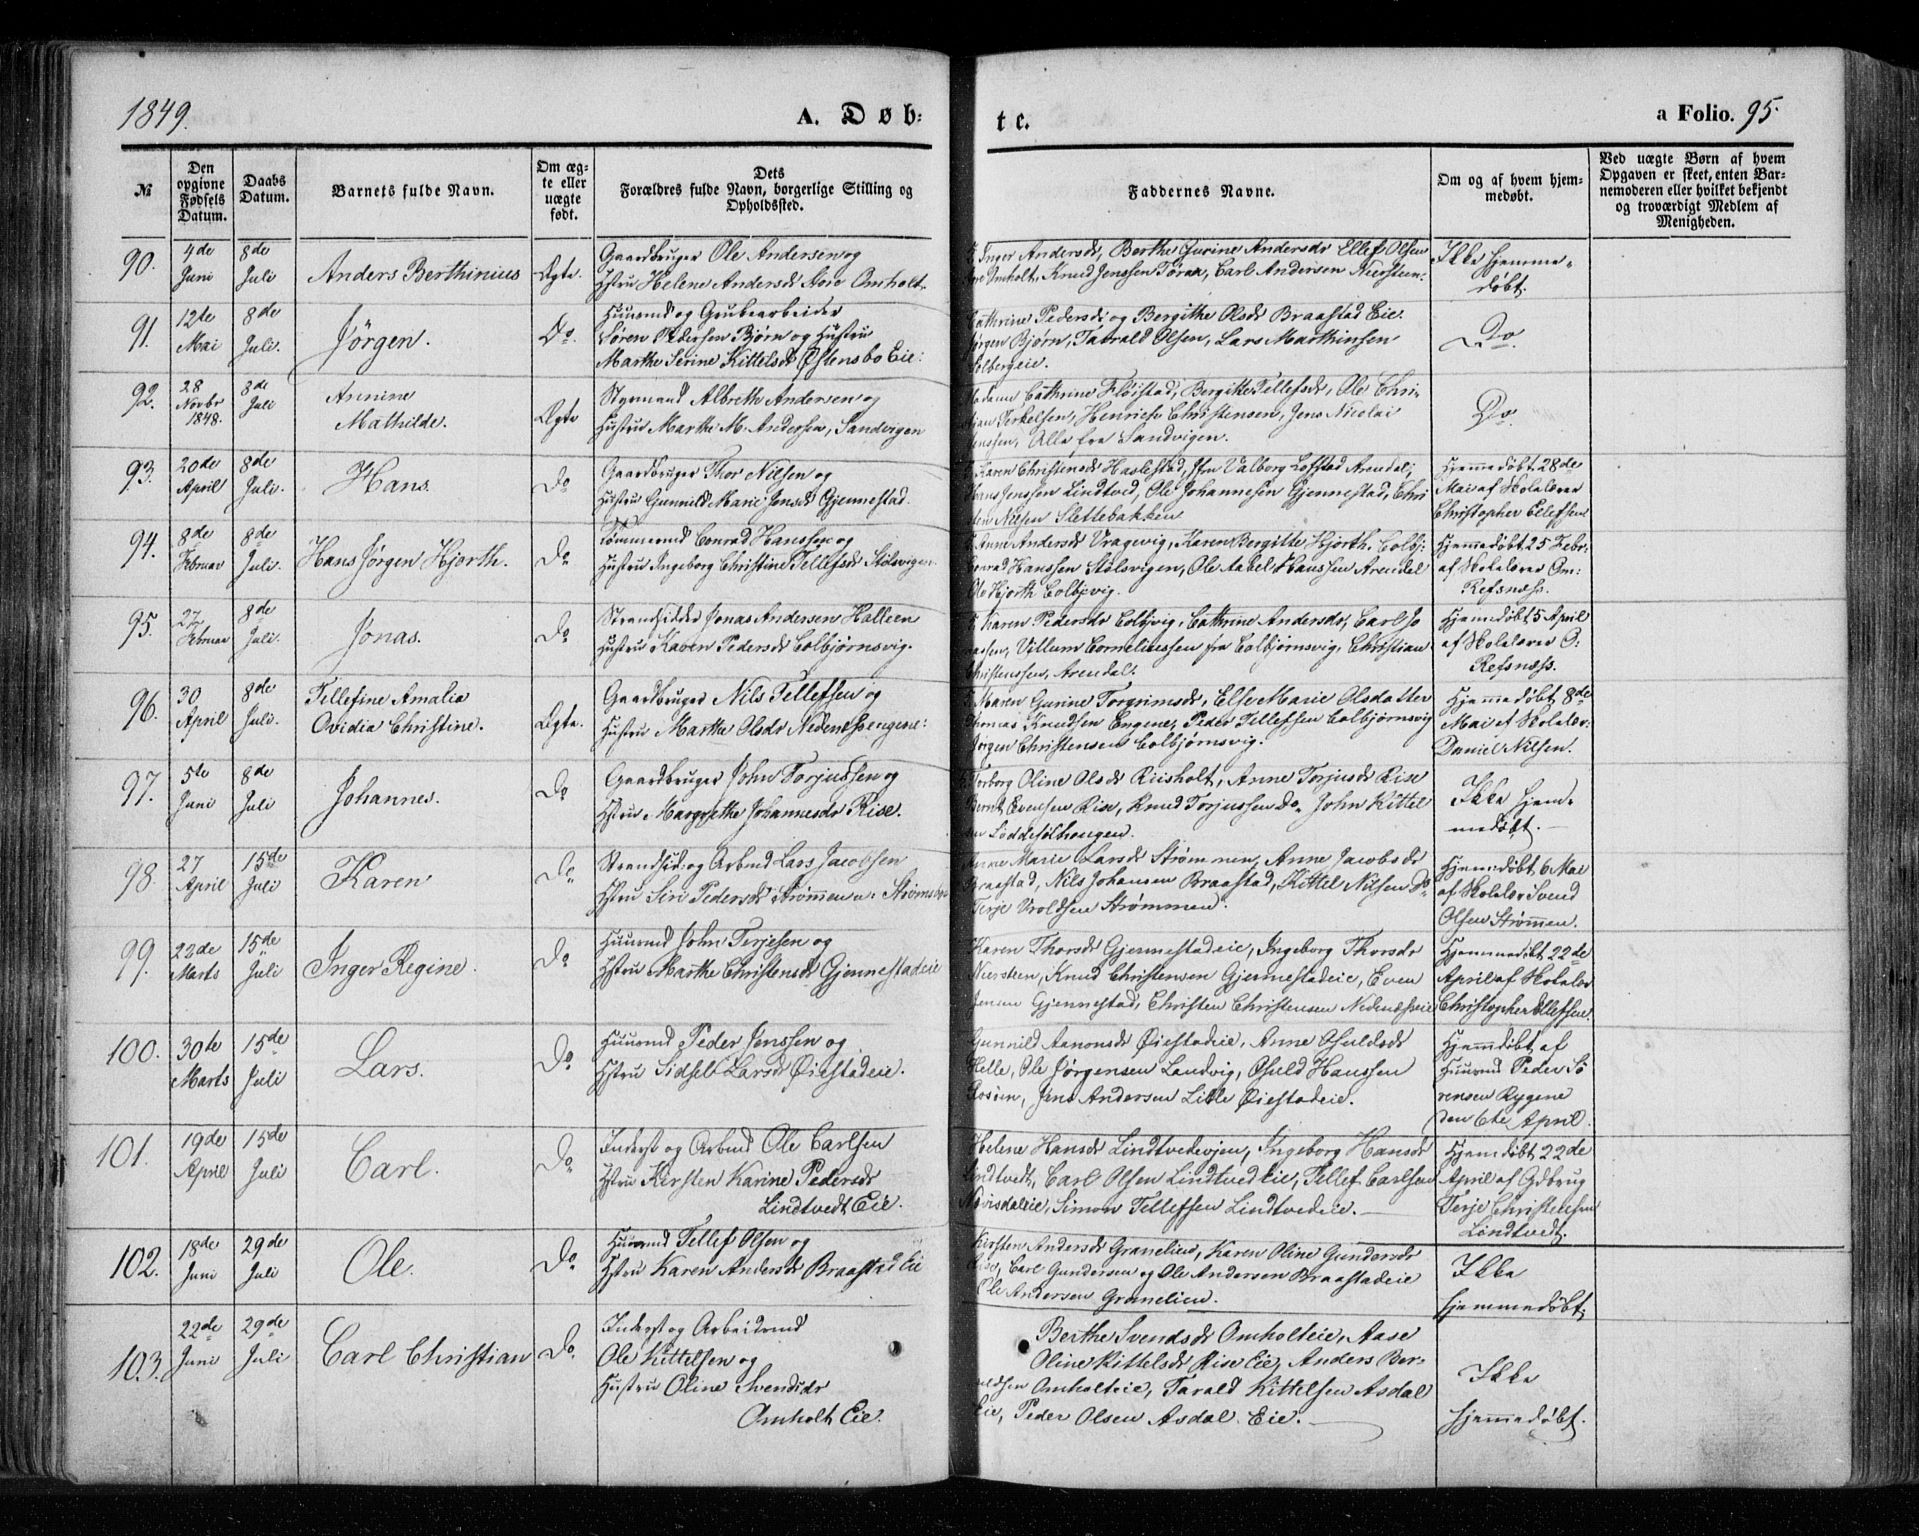 1849.
A. Døb-
te.
a Folio. 95.
№
Den opgivne Fødsels Datum.
Daabs Datum.
Barnets fulde Navn.
Om ægte eller uægte født.
Dets Forældres fulde Navn, borgerlige Stilling og Opholdssted.
Faddernes Navne.
Om og af hvem hjemmedøbt.
Ved uægte Børn af hvem Opgaven er skeet, enten Barnemoderen eller hvilket bekjendt og troværdigt Medlem af Menigheden.
90. 4de Juni 8de Juli Anders Berthinius Ægte.
Gaardbruger Ole Andersen og
Hstru Helene Andersdr Omholt.
Inger Andersdr, Berthe Gurine Andersdr Ellef Olsen
Omholt, Knud Jenssen, Carl Andersen Niersteen
Ikke hjemme-
døbt.
91. 12te Mai 8de Juli. Jörgen. Do.
Huusmd og Grubearbeider
Sören Pedersen Bjørn og Hustru
Marthe Serine Kittelsdr Østensbo Eie:
Cathrine Pedersdr og Bergithe Olsdr Braastad Eie.
Jørgen Bjørn, Tarald Olsen, Lars Marthinsen
Solbergeie.
Do
92. 28 Novbr 1848. 8de Juli Annine
Mathilde. Ægte
Styrmand Albreth Andersen og
Hustru Marthe M. Andersen, Sandvigen
Madame Cathrine Fløistad, Bergitte Tellefsdr, Ole Chri-
stian Terkelsen, Henrich Christensen, Jens Nicolai
Jenssen, Alle fra Sandvigen.
Do.
93. 20de April 8de Juli. Hans. Do
Gaardbruger Thor Nilsen og
Hustru Gunnild Marie Jensdr Gjennestad.
Karen Christensdr Haslestad, Jfru Valborg Lofstad Arendal,
Hans Jenssen Lindtved, Ole Johannesen Gjennestad, Chri-
sten Nilsen Slettebakken
Hjemmedøbt 28de
Mai af Skolelærer
Christopher Ellefsen
94. 8de Februar 8de Juli. Hans Jørgen Hjorth. Do
Tømmermd Conrad Hanssen og
Hustru Ingeborg Christine Tellefsdr Stølsvigen
Anne Andersdr Vragevig, Karen Bergitte Hjorth, Colbj:
Conrad Hanssen Stølsvigen, Ole Aabel Hanssen Arendal
Ole Hjorth Colbjvig.
Hjemmedøbt 25 Febr.
af Skolelærer Om-
Refsnæss.
95. 27 Februar 8de Juli. Jonas. Do
Strandsidder Jonas Andersen Halleen
Hustru Karen Pedersdr Colbjørnsvig.
Karen Pedersdr Colbjvig, Cathrine Andersdr, Carl Jo
Villum Corneliussen fra Colbjørnsvig, Christian
Christenssen, Arendal.
Hjemedøbt 5 April
af Skolelærer O:
Refsnæss.
96. 30 April 8de Juli. Tellefine Amalia
Ovidia Christine. Ægte.
Gaardbruger Nils Tellefsen og
Hustru Marthe Olsdr Nedenæsengene:
Maren Gurine Torgrimsdr, Else Marie Olsdatter
Thomas Knudsen Engene, Peder Tellefsen Colbjørnsvig
Jørgen Christensen Colbjørnsvig.
Hjemmedøbt 8de
Mai af Skolelær.
Daniel Nilsen.
97. 5te Juni 8de Juli Johannes. Do
Gaardbruger John Torjussen og
Hstru Margrethe Johannesdr Rise.
Torborg Oline Olsdr Riisholt, Anne Torjusdr Rise
Bernt Evensen Rise, Knud Torjussen Do, John Kittel
sen Løddesølhougen.
Ikke hjem-
medøbt.
98. 27 April 15de Juli Karen Do
Strandsid. og Arbmd Lars Jacobsen
Hstru Siri Pedersdr Strømmen
Anne Marie Larsdr Strømmen, Anne Jacobsdr
Braastad, Nils Johansen Braastad, Kittel Nilsen Do
Terje Vroldsen Strømmen.
Hjemedøbt 6 Mai
af Skolelær Svend
Olsen Strømmen.
99. 22de Marts 15de Juli Inger Regine. Do
Huusmd John Terjesen og
Hstru Marthe Christensdr Gjennestadeie
Karen Thorsdr Gjennestadeie, Ingeborg Thorsdr
Niersteen, Knud Christensen Gjennestadeie, Even
Jensen Gjennestad, Christen Christensen Nedenæsseie
Hjemmedøbt 22de
April af Skolelær
Christopher Ellefsen.
100. 30te Marts 15de Juli Lars. Do
Huusmd Peder Jenssen og
Hstru Sidsel Larsdr Øiestadeie.
Gunnild Aanonsdr Øiestadeie, Anne Osuldsdr
Helle, Ole Jørgensen Landvig, Osuld Hanssen
Rosøen, Jens Andersen Lille Øiestadeie.
Hjemdøbt af
Huusmd Peder Sö
rensen Rygene
den 6te April.
101. 19de April 15de Juli Carl. Do
Inderst og Arbmd Ole Carlsen
Hstru Kirsten Karine Pedersdr
Lindtvedt Eie.
Helene Hansdr Lindtvedeie, Ingeborg Hansdr
Lindtvedt, Carl Olsen Lindtved Eie, Tellef Carlsen
Simon Tellefsen Lindtvedeie.
Hjemdøbt 22de
April af Gdbrug
Terje Christensen
Lindtvedt.
102. 18de Juni 29de Juli Ole. Do
Huusmd Tellef Olsen og
Hstru Karen Andersdr Braastad Eie
Kirsten Andersdr Granelien, Karen Oline Gundersdr
Rise, Carl Gundersen og Ole Andersen Braastadeie
Ole Andersen Granelien.
Ikke
hjemmedøbt.
103. 22de Juni 29de Juli Carl Christian Do.
Inderst og Arbeidsmd
Ole Kittelsen og
Hustru Oline Svendsdr
Omholt Eie.
Berthe Svendsdr Omholteie, Aase
Oline Kittelsdr Rise Eie, Anders Ber-
Omholteie, Tarald Kittelsen Asdal
Eie, Peder Olsen Asdal Eie.
Ikke
hjemmedøbt.